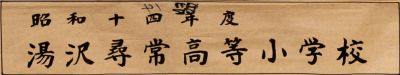 昭和十四年度
湯沢尋常高等小学校